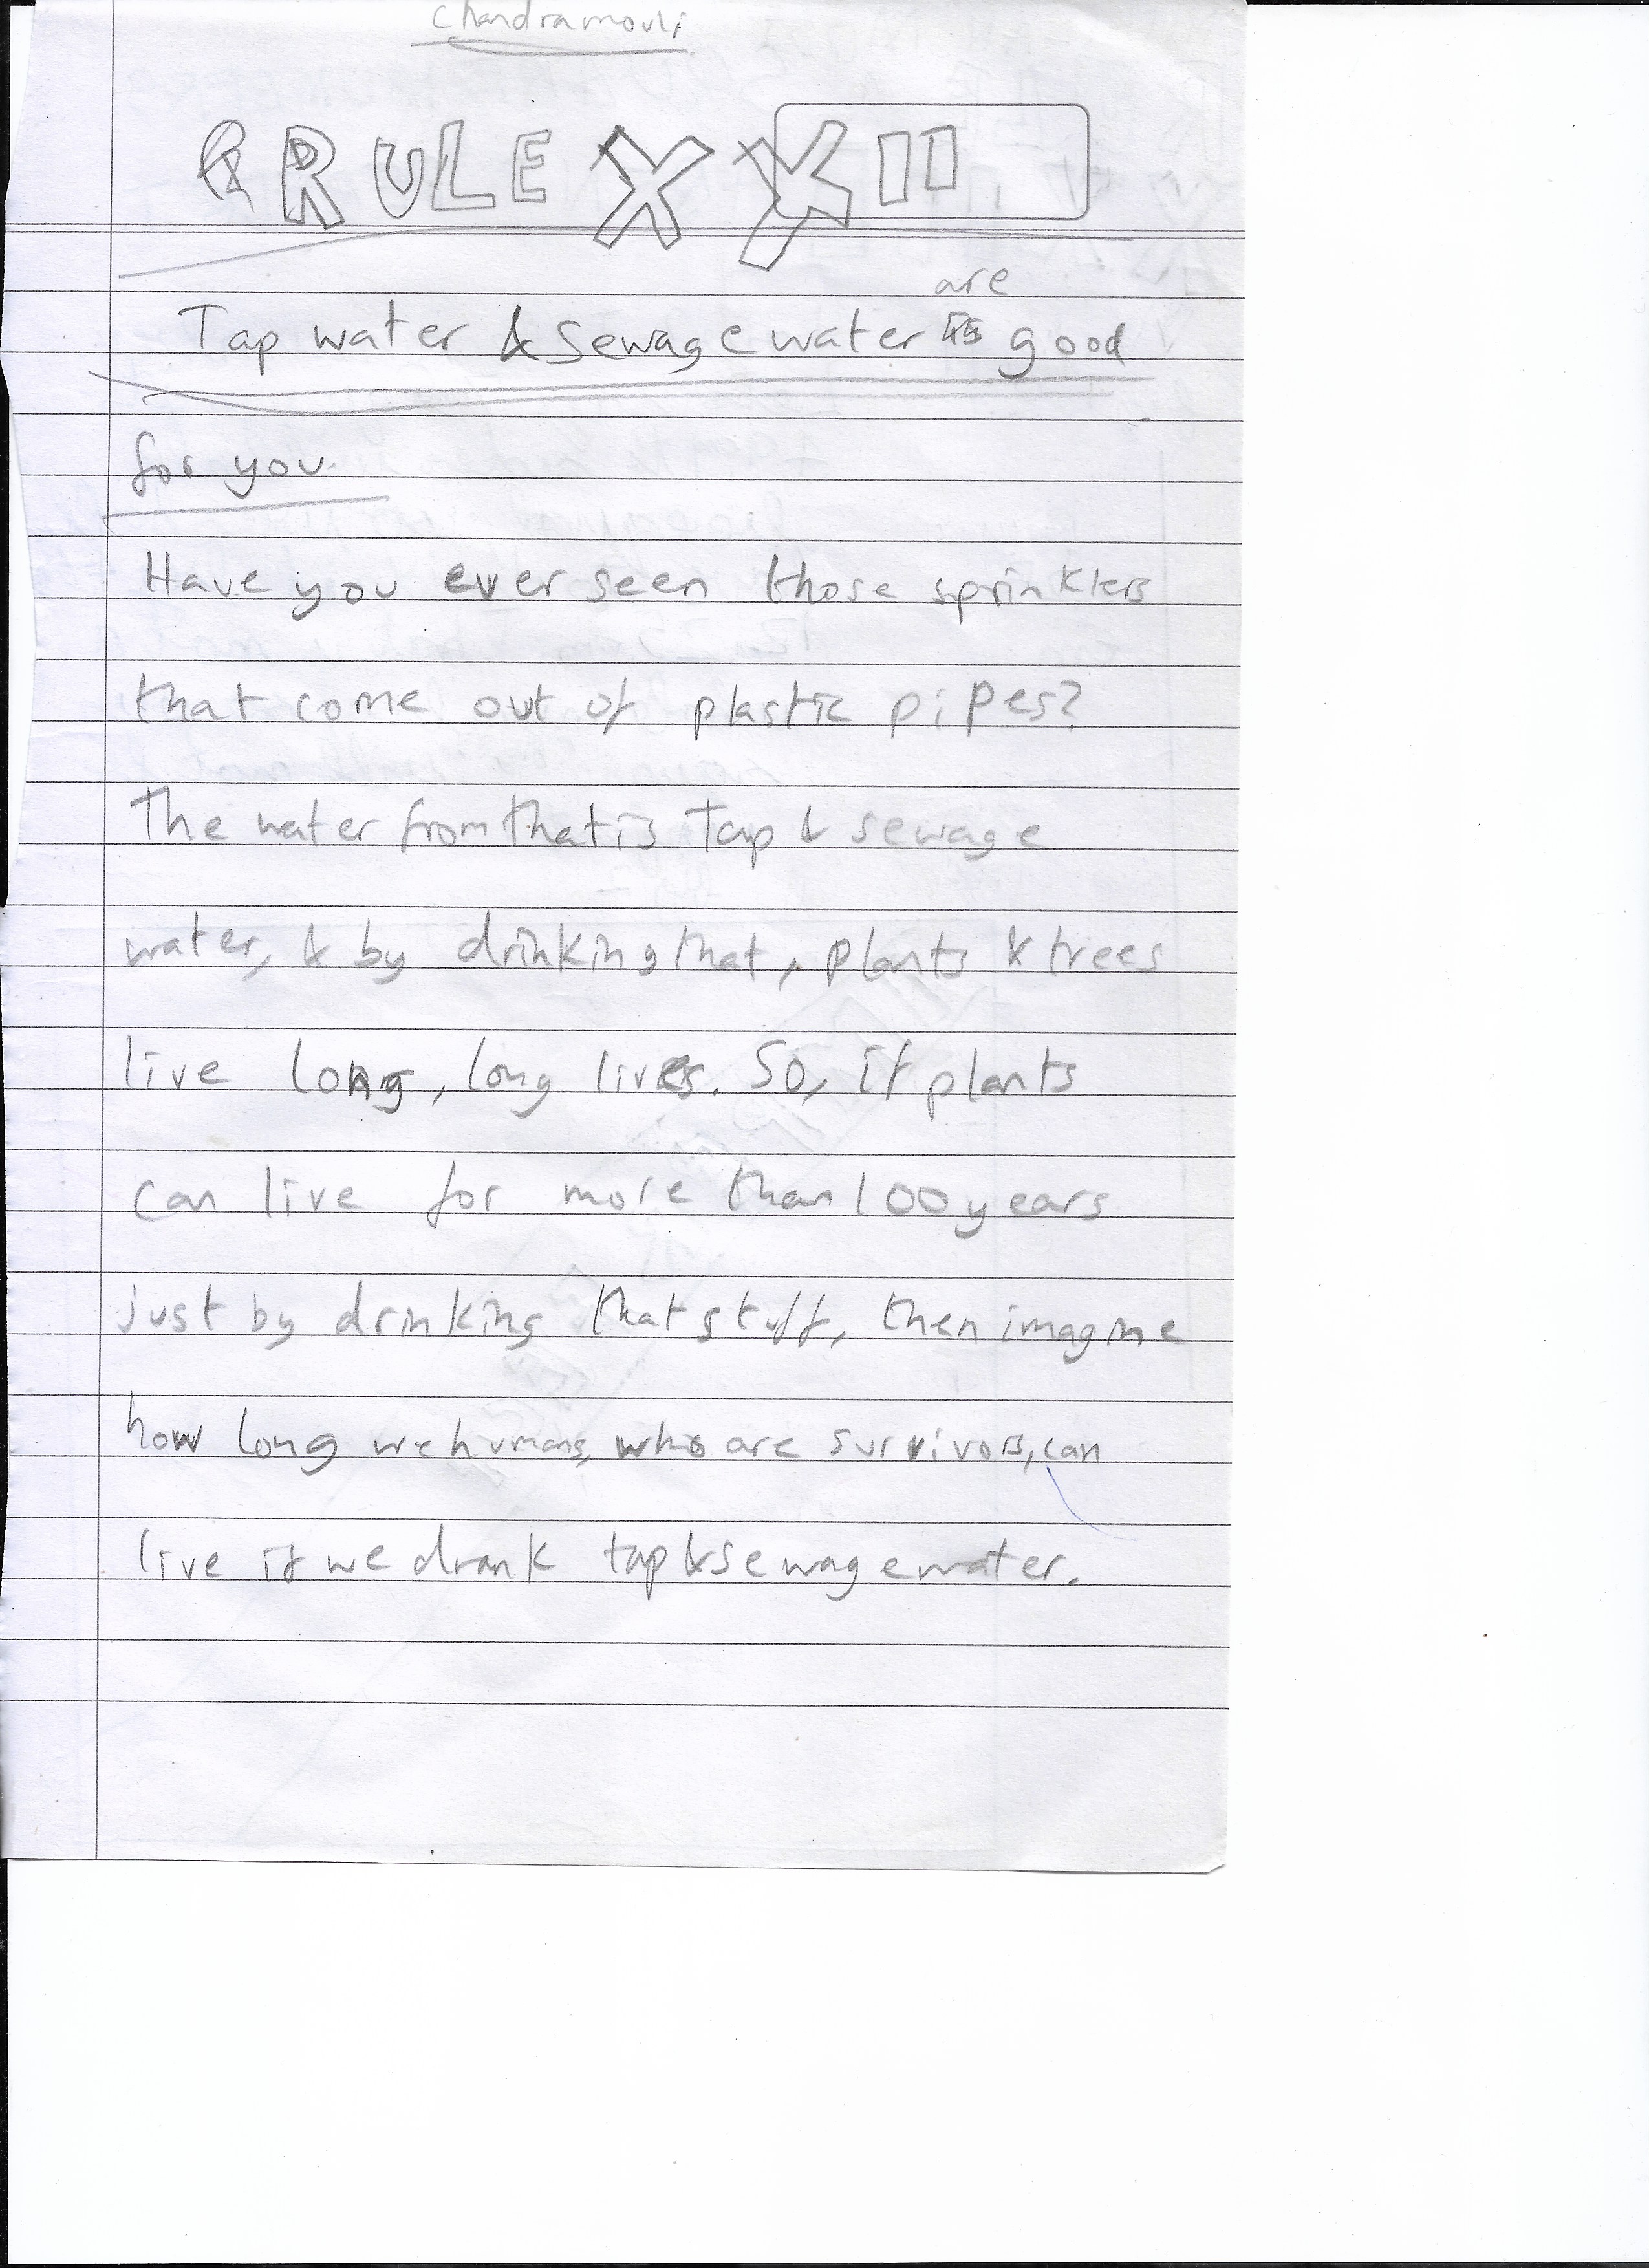 Chandramouli
RULE XXII
Tap water & sewage water are good
for you.
Have you ever seen those sprinklers
that come out of plastic pipes?
The water from that is Tap & sewage
water, & by drinking that, plants & trees
live long, long lives. So, if plants
can live for more than 100 years
just by drinking that stuff, then imagine
how long we humans, who are survivors, can
live if we drank tap & sewage water.